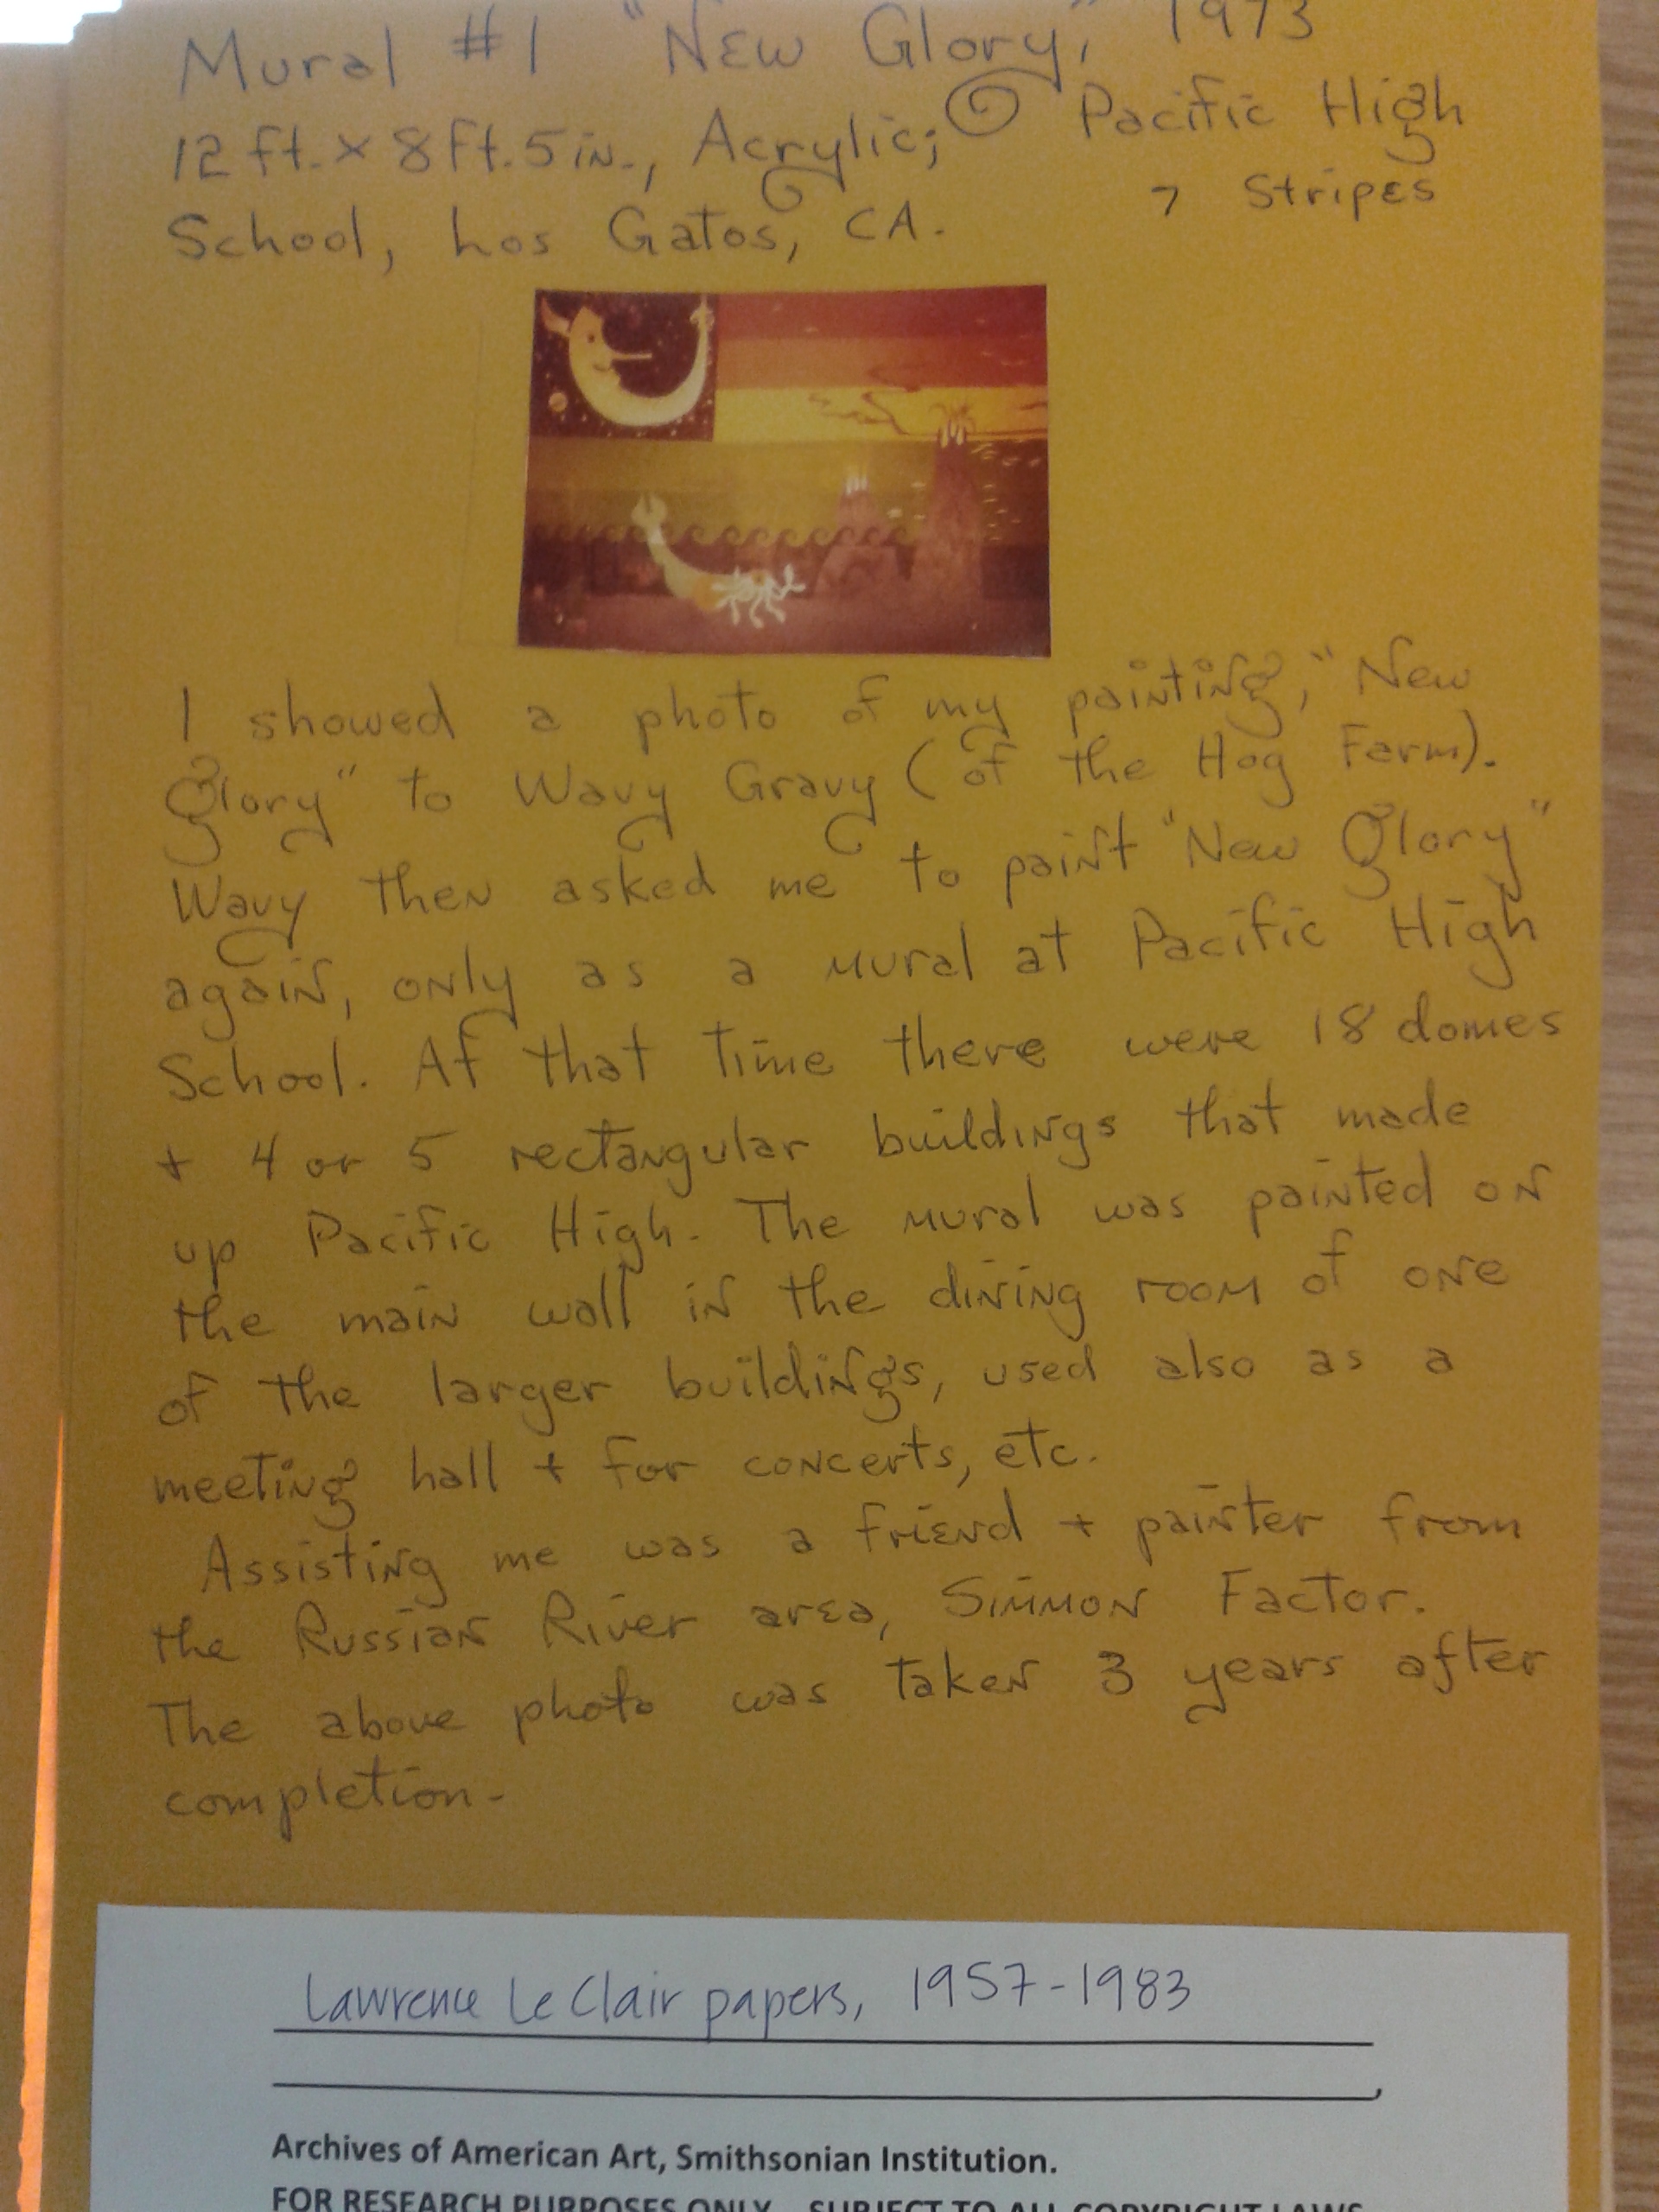 Mural #1 "New Glory," 1973
12 ft. x 8 ft. 5 in., Acrylic; Pacific High
School, Los Gatos, CA. 7 Stripes
I showed a photo of my painting, "New
Glory" to Wavy Gravy (of the Hog Farm).
Wavy then asked me to paint "New Glory"
again, only as a mural at Pacific High
School. At that time there were 18 domes
+ 4 or 5 rectangular buildings that made
up Pacific High. The mural was painted on
the main wall in the dining room of one
of the larger buildings, used also as a
meeting hall + for concerts, etc.
Assisting me was a friend + painter from
the Russian River area, Simmon Factor.
The above photo was taken 3 years after
completion.
Lawrence Le Clair papers, 1957-1983
Archives of American Art, Smithsonian Institution.
FOR RESEARCH PURPOSES ONLY SUBJECT TO ALL COPYRIGHT LAWS